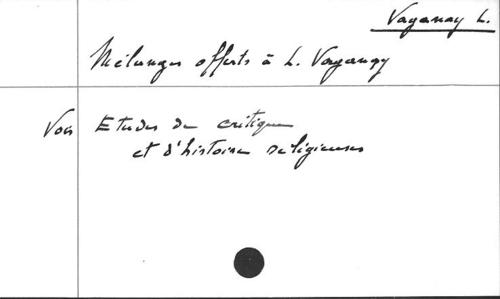 Vaganay L.
Mélanges offerts à L. Vaganay
Voir Etudes de critique
et d'histoire religieuses